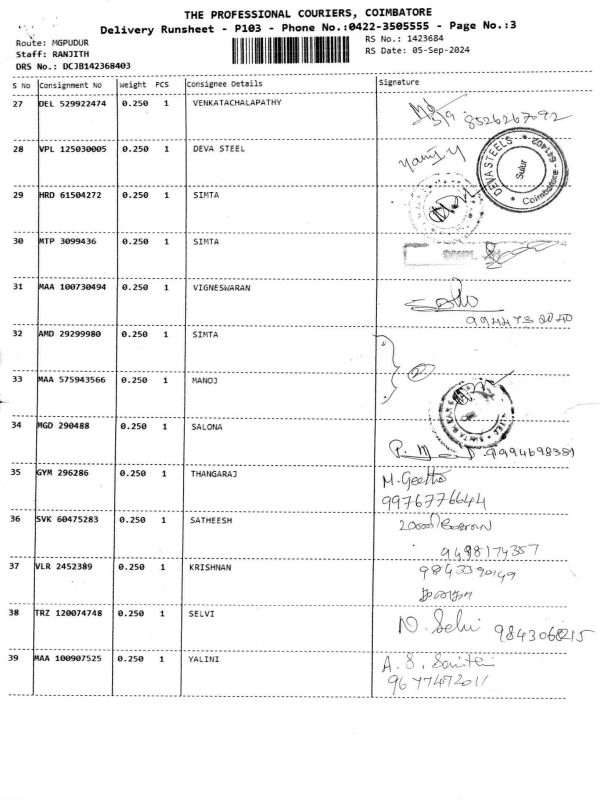 THE PROFESSIONAL COURIERS, COIMBATORE
Delivery Runsheet - P103 - Phone No.:0422-3505555 - Page No.:3
Route: MGPUDUR
RS No.: 1423684
Staff: RANJITH
RS Date: 05-Sep-2024
DRS No.: DCJB142368403
S No Consignment No Weight PCS Consignee Details Signature
27 DEL 529922474 0.250 1 VENKATACHALAPATHY
8526267092
28 VPL 125030005 0.250 1 DEVA STEEL
DEVA STEELS * Coimbatore - 641402 *
Sulur
29 HRD 61504272 0.250 1 SIMTA
30 MTP 3099436 0.250 1 SIMTA
31 MAA 100730494 0.250 1 VIGNESWARAN
32 AMD 29299980 0.250 1 SIMTA
33 MAA 575943566 0.250 1 MANOJ
34 MGD 290488 0.250 1 SALONA
35 GYM 296286 0.250 1 THANGARAJ M. Geetha
9976776644
36 SVK 60475283 0.250 1 SATHEESH
9498174357
37 VLR 2452389 0.250 1 KRISHNAN 9843390149
38 TRZ 120074748 0.250 1 SELVI N. Selvi 9843068215
39 MAA 100907525 0.250 1 YALINI A. S.
9677472011